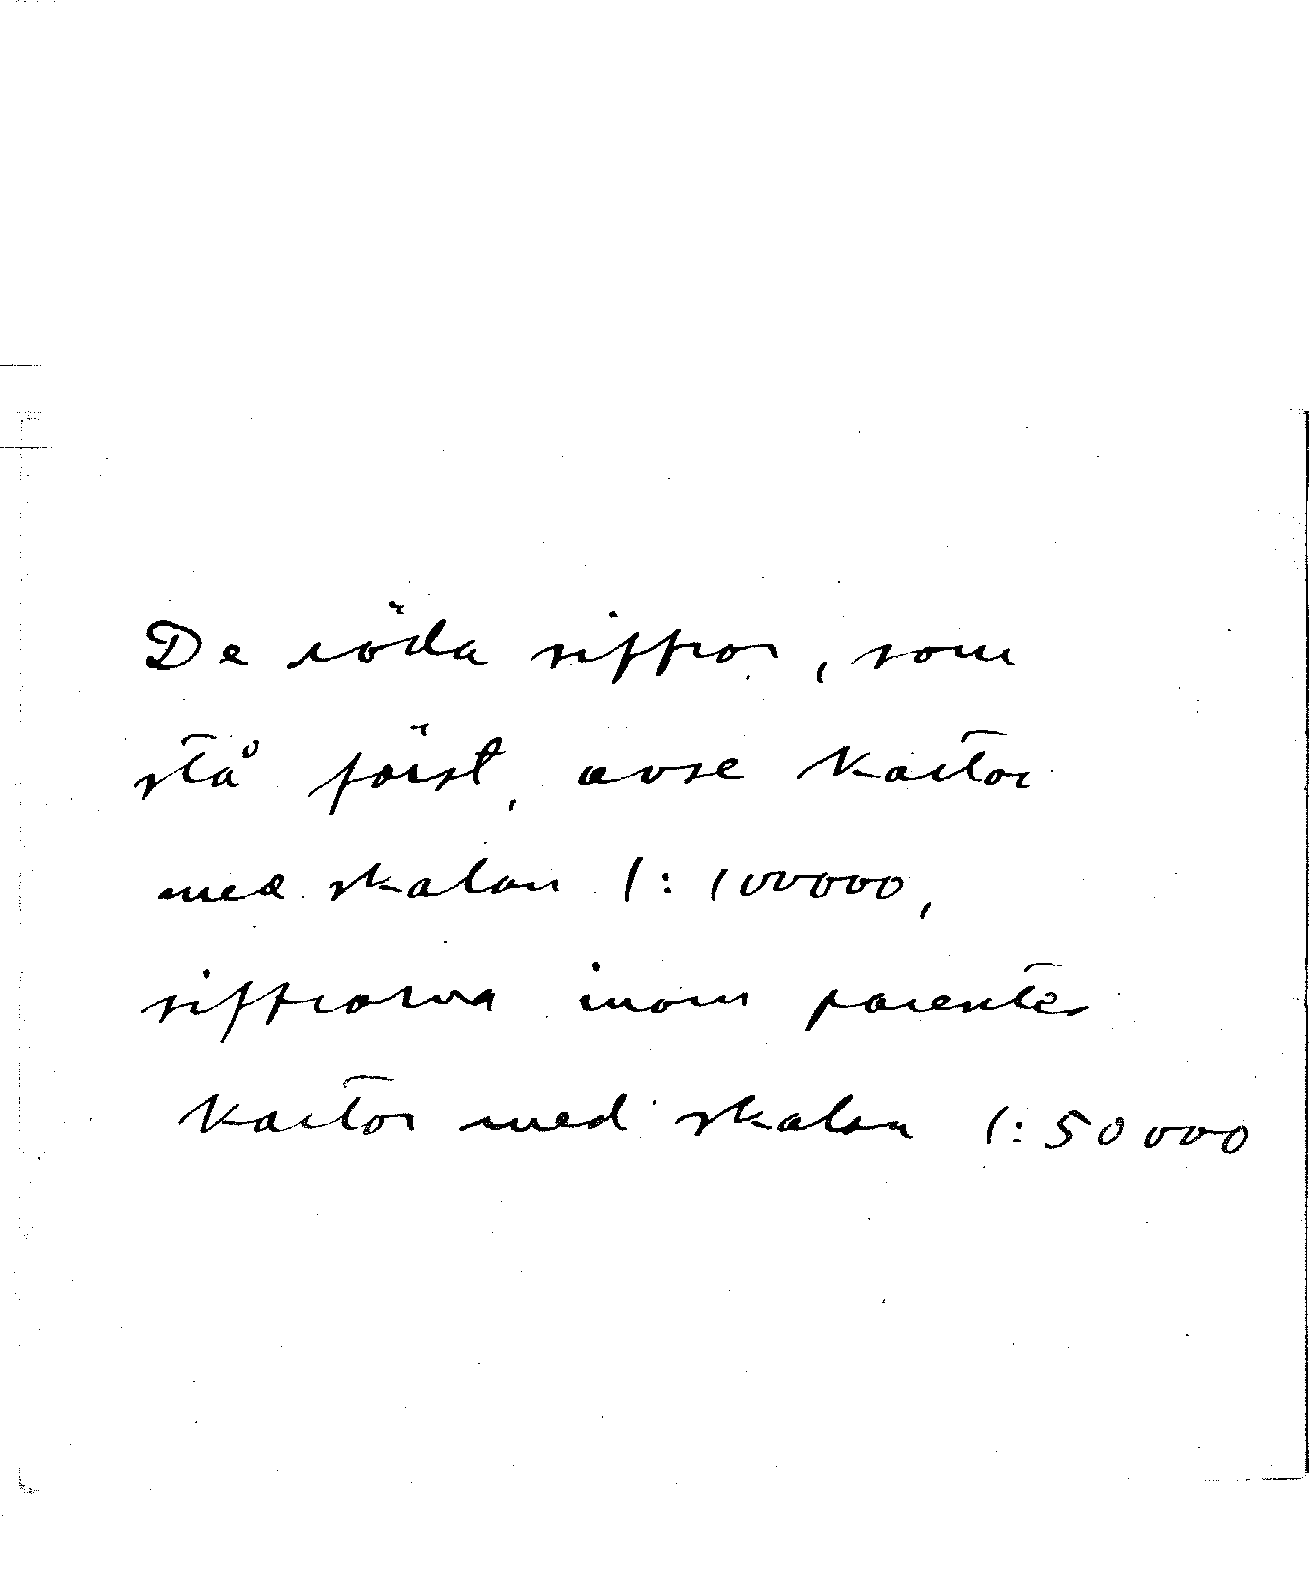 De röda siffror, som
stå först, avse kartor
med skalan 1:100000,
siffrorna inom parentes
kartor med skalan 1:50000